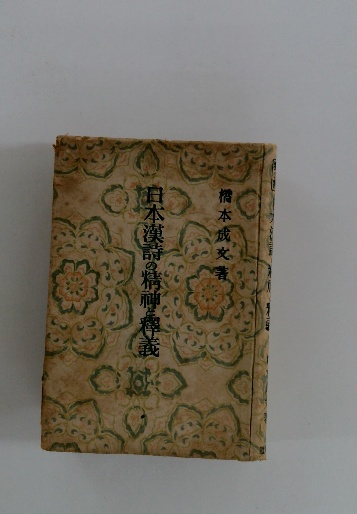 橋本成文著
日本漢詩の精神と釋義